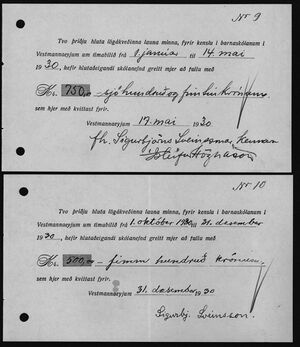 No 9
Tvo þriðju hluta lögákveðinna launa minna, fyrir kenslu í barnaskólanum í
Vestmannaeyjum um tímabilið frá 1 janúar til 14. mai
1930, hefir hlutaðeigandi skólanefnd greitt mjer að fullu með
Kr. 750,00 - sjö hundruð og fimmtíu krónum
sem hjer með kvittast fyrir.
Vestmannaeyjum 17. mai 1930
fh. Sigurbjörns Sveinssonar kennara
Högnason
No 10
Tvo þriðju hluta lögákveðinna launa minna, fyrir kenslu í barnaskólanum í
Vestmannaeyjum um tímabilið frá 1. október 1930 til 31. desember
1930, hefir hlutaðeigandi skólanefnd greitt mjer að fullu með
Kr. 500,00 - fimm hundruð krónum
sem hjer með kvittast fyrir.
Vestmannaeyjum 31. desember 1930
Sigurbj. Sveinsson.